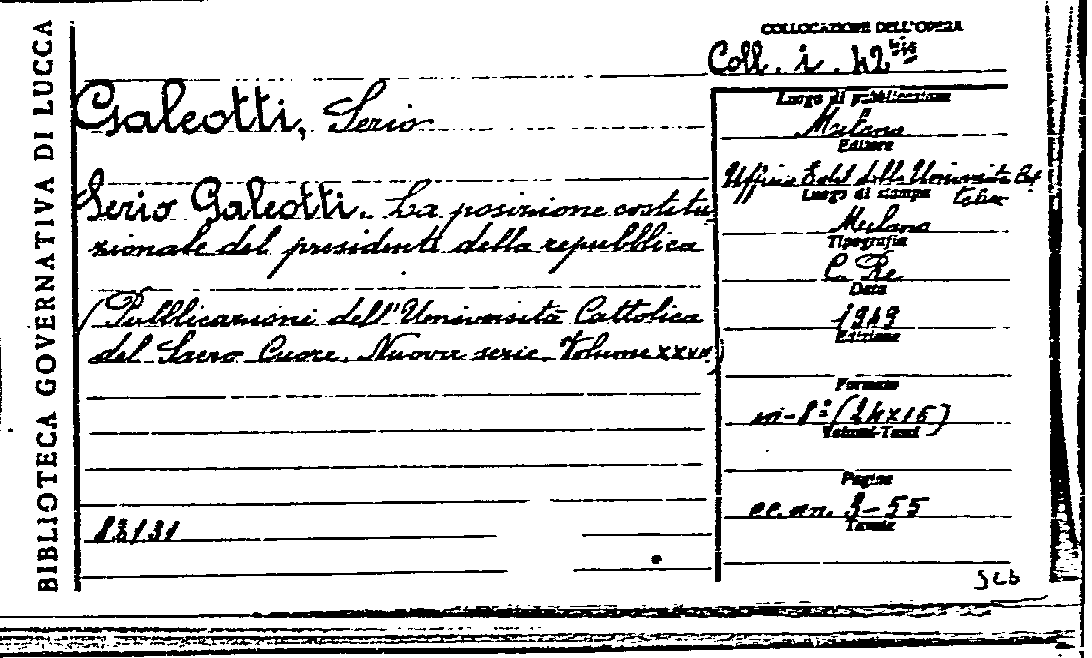 BIBLIOTECA GOVERNATIVA DI LUCCA
COLLOCAZIONE DELL'OPERA
Coll. i. 42 bis
Galeotti, Serio
Serio Galeotti. La posizione costitu
zionale del presidente della repubblica
(Pubblicazioni dell'Università Cattolica
del Sacro Cuore. Nuova serie. Volume XXVII)
83131
Luogo di pubblicazione
Milano
Editore
Uffici Edit della Università Cat
tolica
Luogo di stampa
Milano
Tipografia
C. Re
Data
1949
Edizione
Formato
in-8° (24x15)
Volumi-Tomi
Pagine
cc. nn. 3-55
Tavole